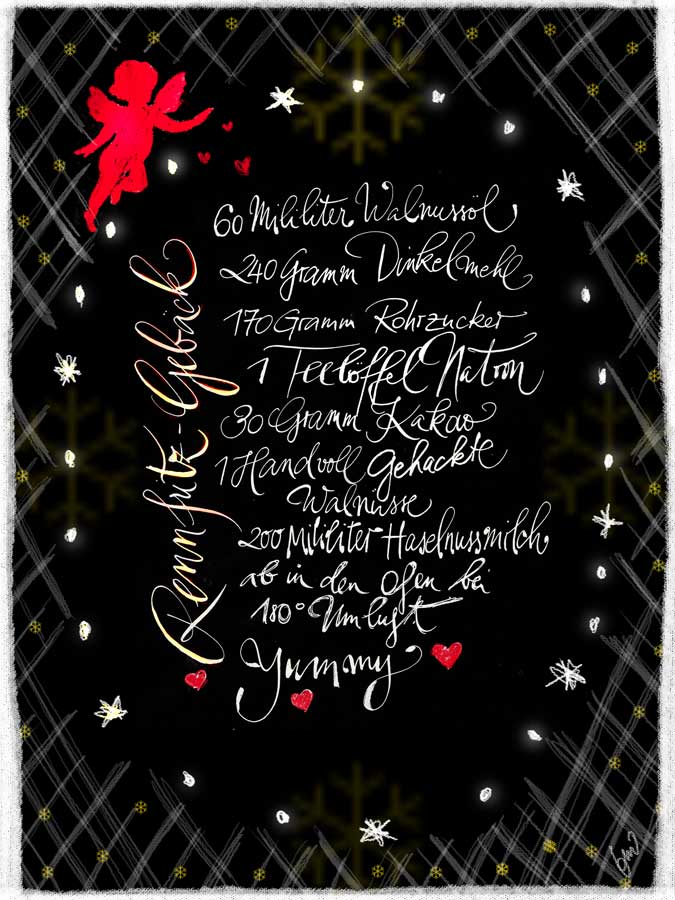 Rennfritz-Gebäck
60 Mililiter Walnussöl
240 Gramm Dinkelmehl
170 Gramm Rohrzucker
1 Teelöffel Natron
30 Gramm Kakao
1 Handvoll gehackte
Walnüsse
200 Mililiter Haselnussmilch
ab in den Ofen bei
180° Umluft
Yummy